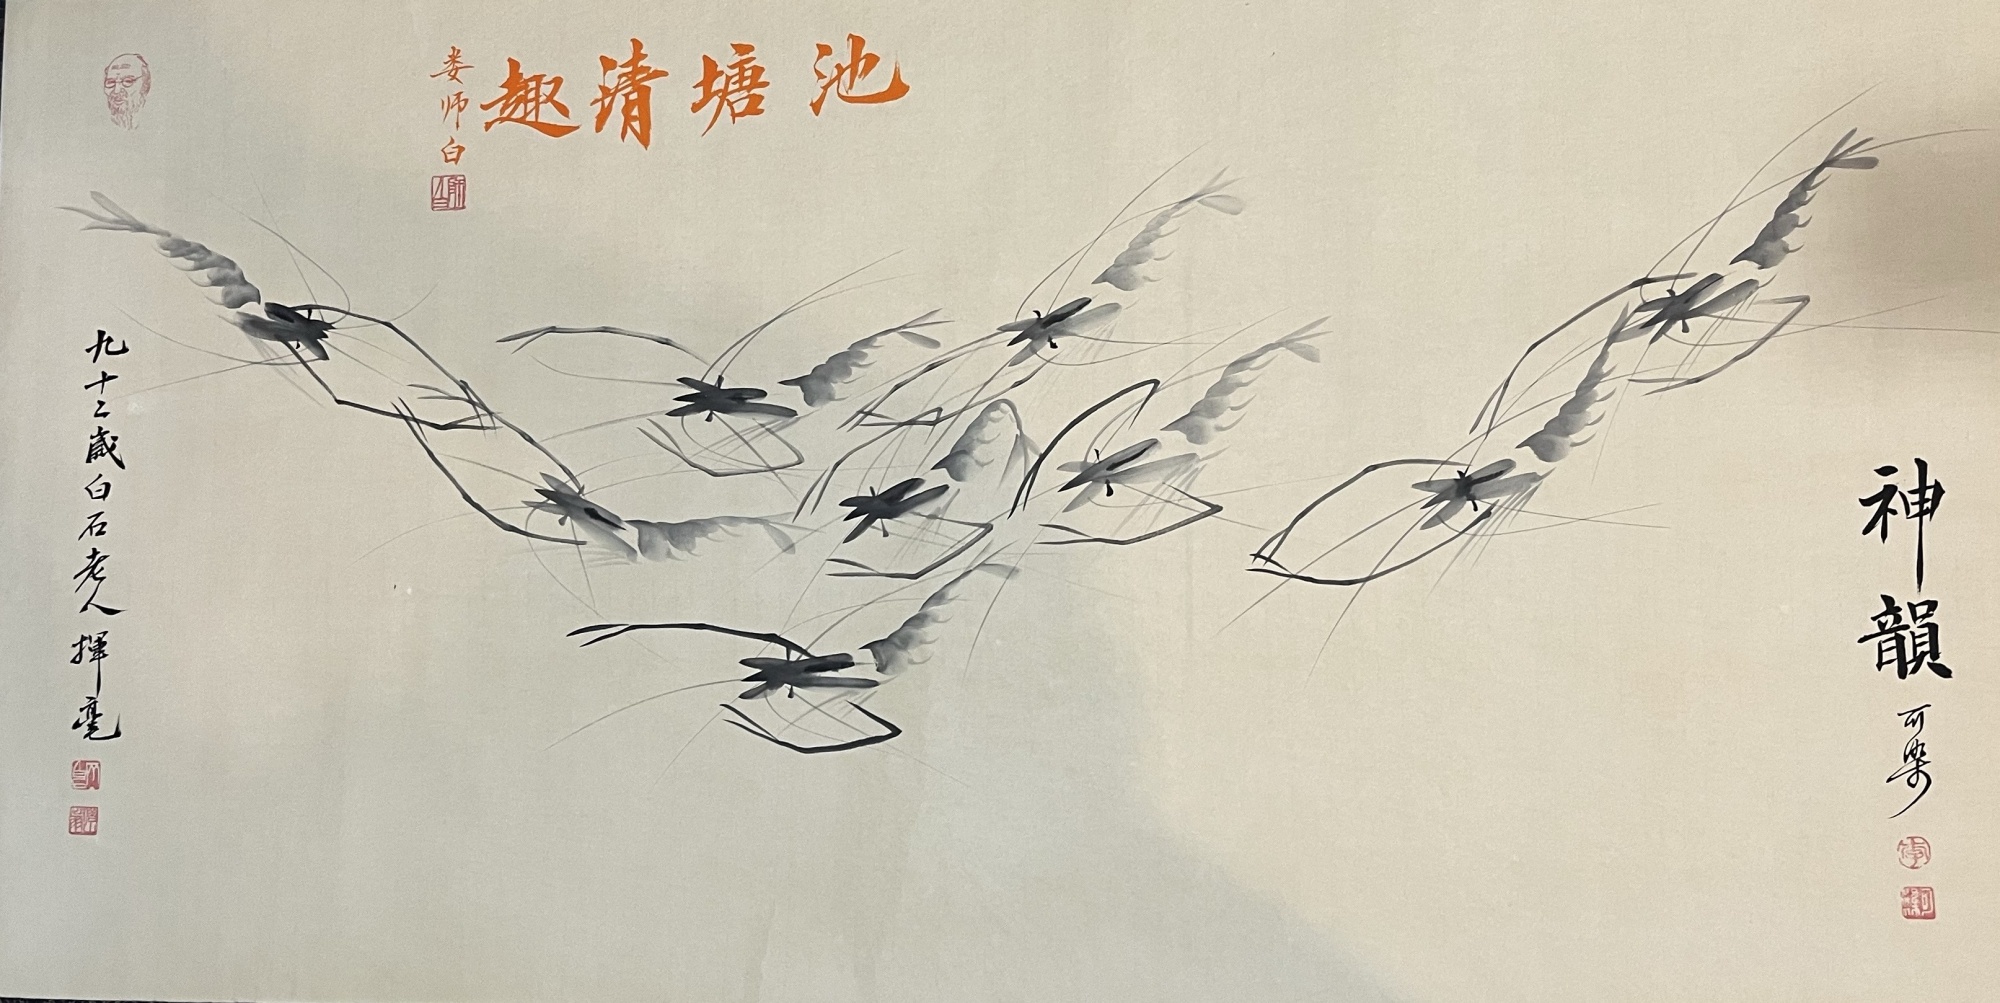 池塘清趣
娄师白
神韻
可染
九十二歲白石老人揮毫